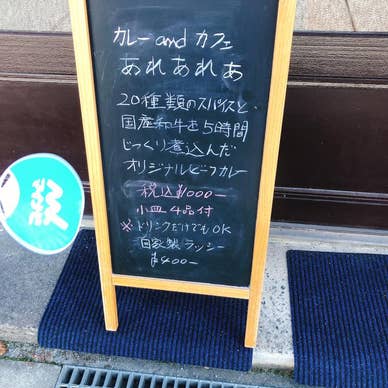 カレー and カフェ
あれあれあ
20種類のスパイスと、
国産和牛を5時間
じっくり煮込んだ
オリジナルビーフカレー
税込¥1000-
小皿4品付
※ドリンクだけでもOK
自家製ラッシー
¥400-